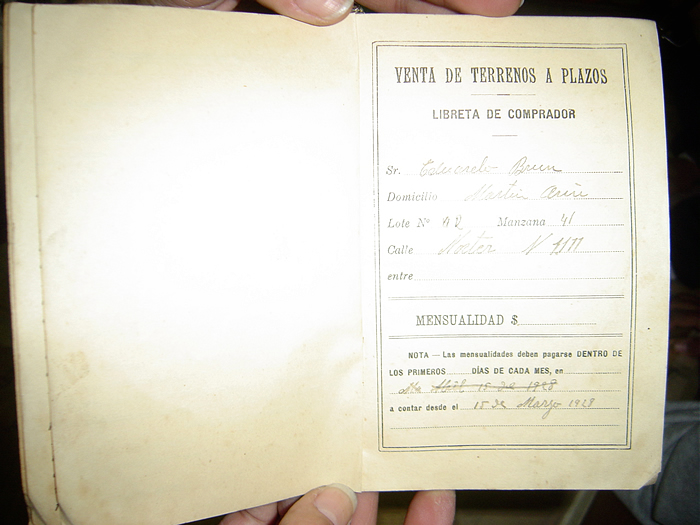 VENTA DE TERRENOS A PLAZOS
LIBRETA DE COMPRADOR
Sr. Eduardo Brun
Domicilio Martin
Lote Nº Manzana 41
Calle N 1177
entre
MENSUALIDAD $
NOTA — Las mensualidades deben pagarse DENTRO DE
LOS PRIMEROS DIAS DE CADA MES, en
Abril 15 de 1928
a contar desde el 15 de Marzo 1928